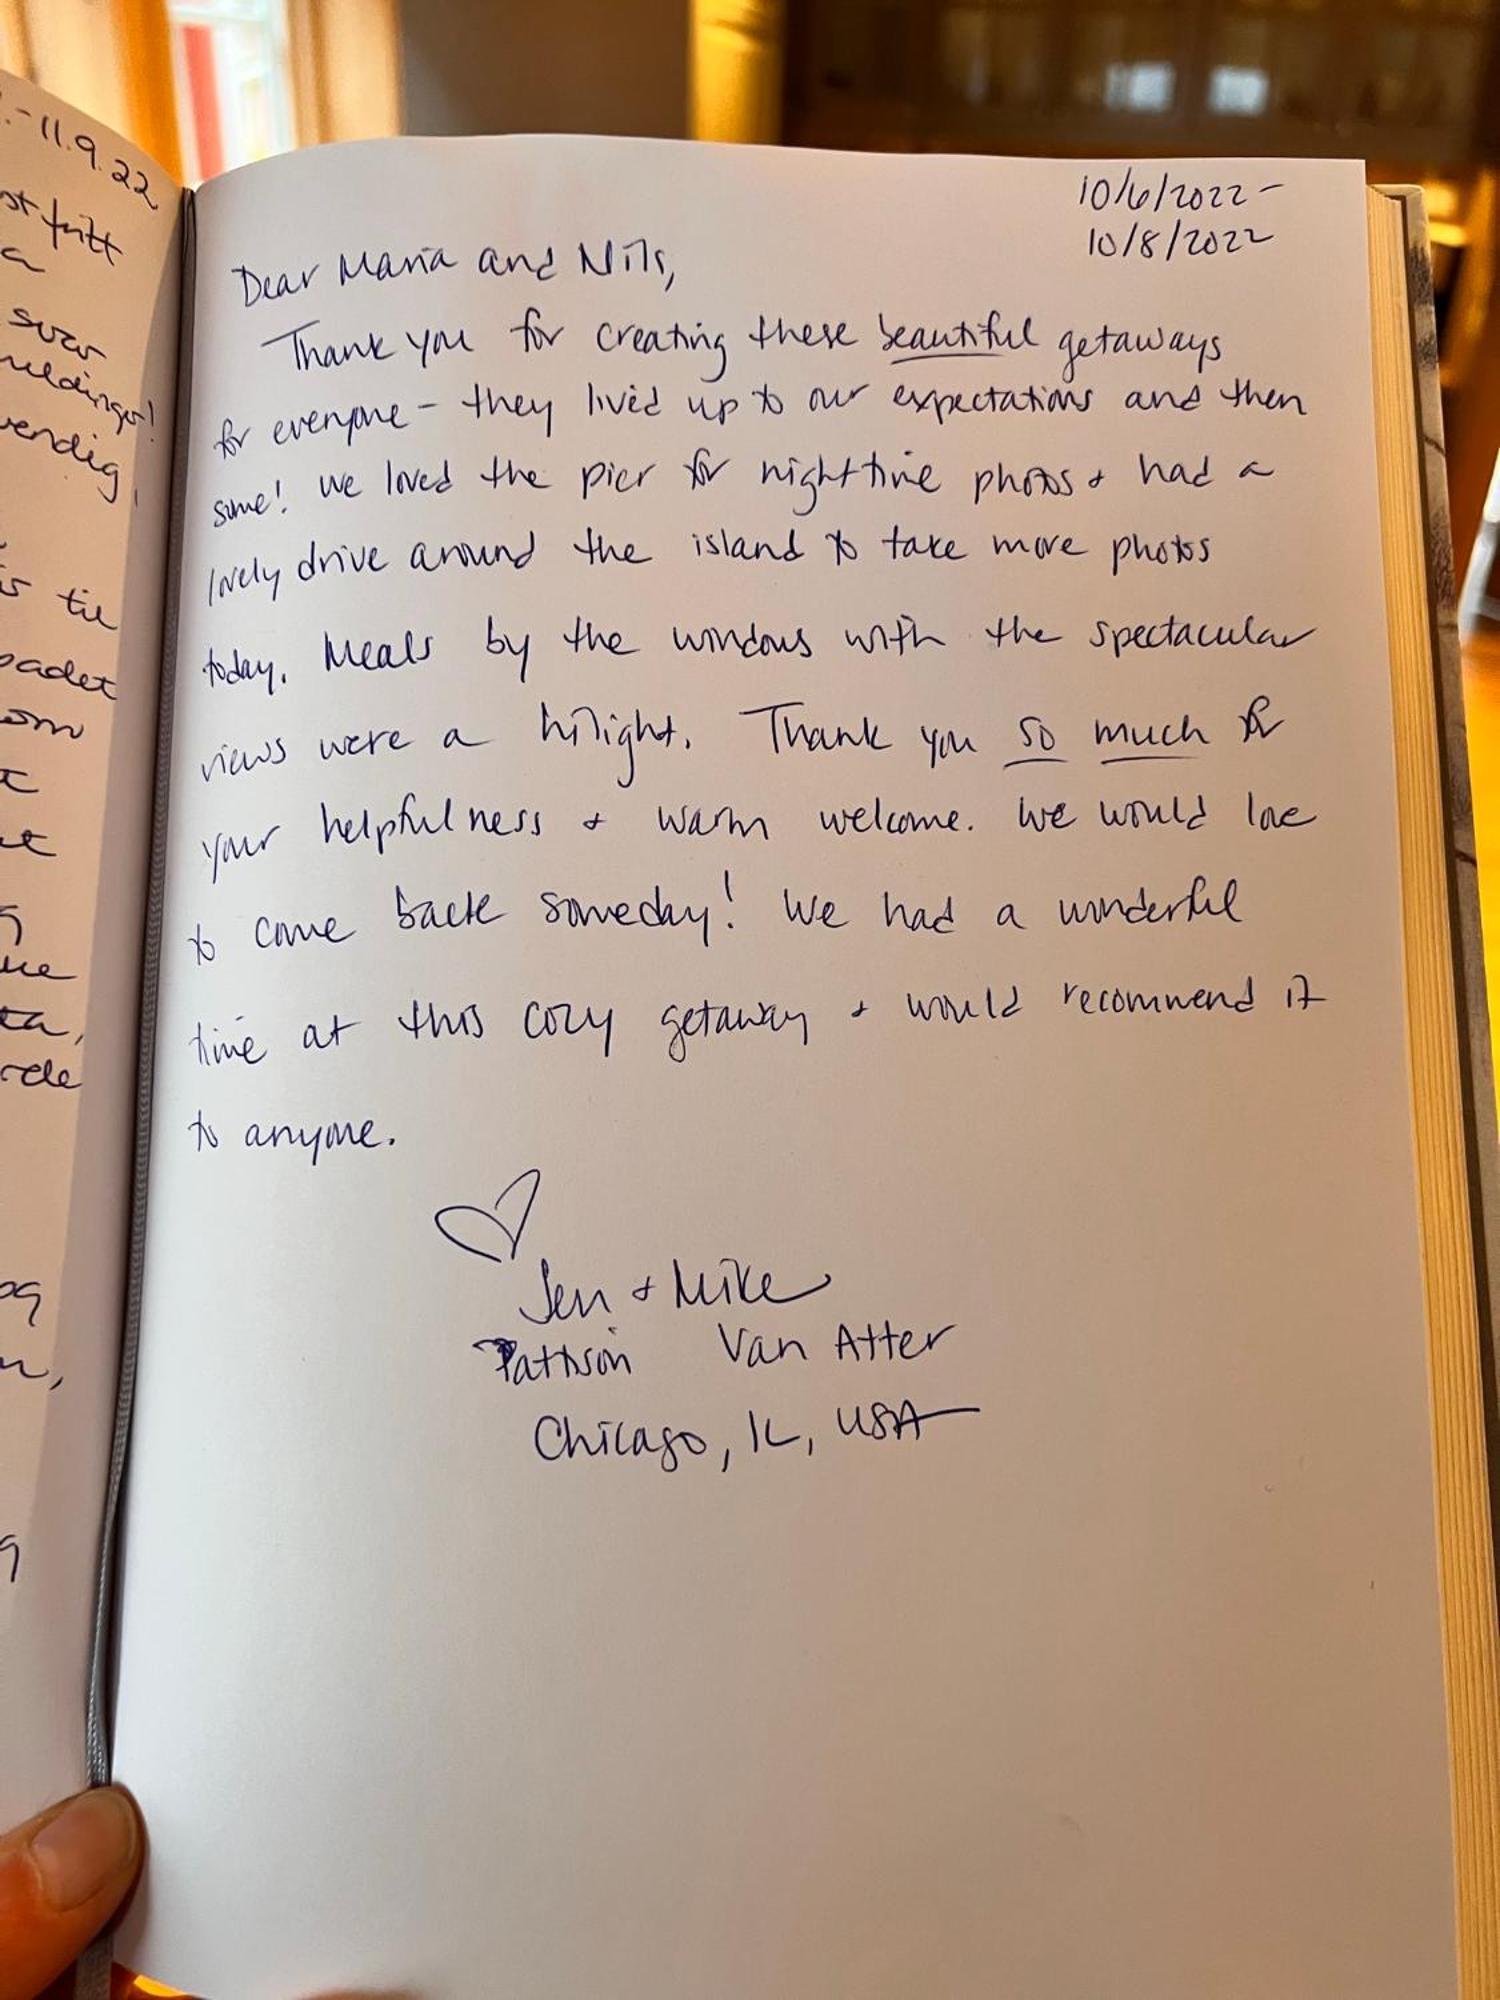 .-11.9.22
svær
vendig,
til
som
10/6/2022-
10/8/2022
Dear Maria and Nils,
Thank you for creating these beautiful getaways
for everyone - they lived up to our expectations and then
some! We loved the pier for nighttime photos + had a
lovely drive around the island to take more photos
today. Meals by the windows with the spectacular
views were a hilight. Thank you so much for
your helpfulness + warm welcome. We would love
to come back someday! We had a wonderful
time at this cozy getaway + would recommend it
to anyone.
Jen + Mike
Pattison Van Atter
Chicago, IL, USA